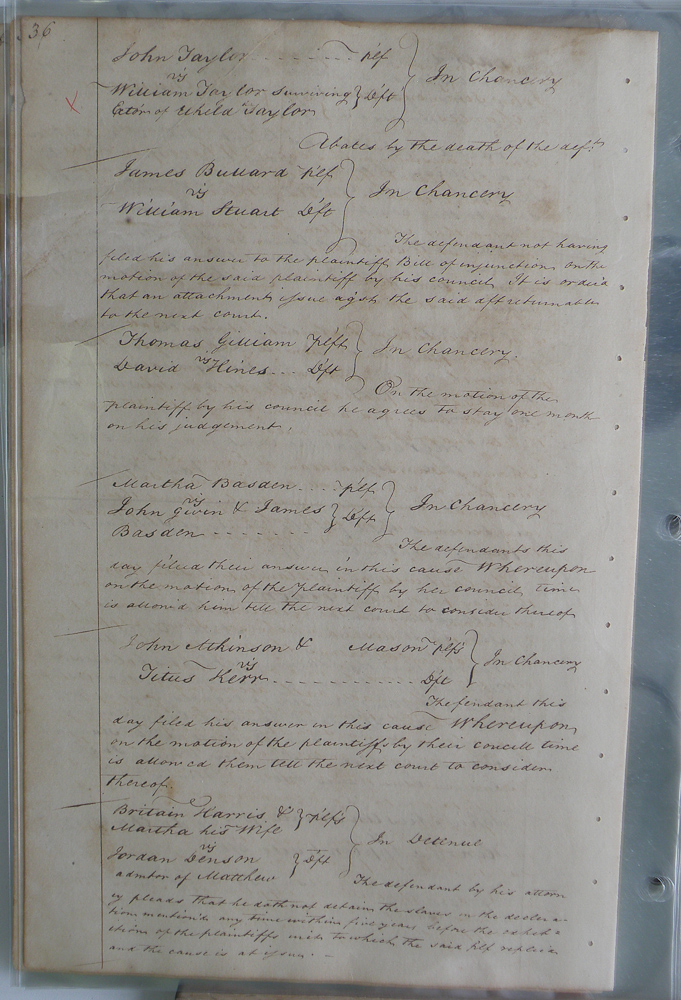 36
John Taylor - - - - - - - Plf
vs
William Taylor surviving } Dft
Exor of Etheld Taylor
In Chancery
Abates by the death of the deft.
James Bullard Plf
vs
William Stuart Dft
In Chancery
The defendant not having
filed his answer to the plaintiff Bill of injunction, on the
motion of the said plaintiff by his council, It is orderd
that an attachment issue agst the said dft returnable
to the next court.
Thomas Gilliam Plft
vs
David Hines... Dft
In Chancery.
On the motion of the
plaintiff by his council he agrees to stay one month
on his judgement.
Martha Basden.... Plf
vs
John Givin & James } Dft
Basden - - - - - - -
In Chancery
The defendants this
day filed their answer in this cause Whereupon
on the motion, of the plaintiff by her council, time
is allow'd him till the next court to consider thereof
John Atkinson & Mason Plfs
vs
Titus Kerr - - - - - - - - - - - Dft
In Chancery
The fendant this
day filed his answer in this cause Whereupon,
on the motion of the plaintiffs by their coucill time
is allowed them till the next court to consider
thereof.
Britain Harris, & } Plfs
Martha his Wife
vs
Jordan Denson } Dft
admtor of Matthew
In Detenue
The defendant by his attorn
ey pleads that he doth not detain the slaves in the declara-
tion mention'd any time within five years before the
of the plaintiffs writ to which the said plf replied
and the cause is at issue. -